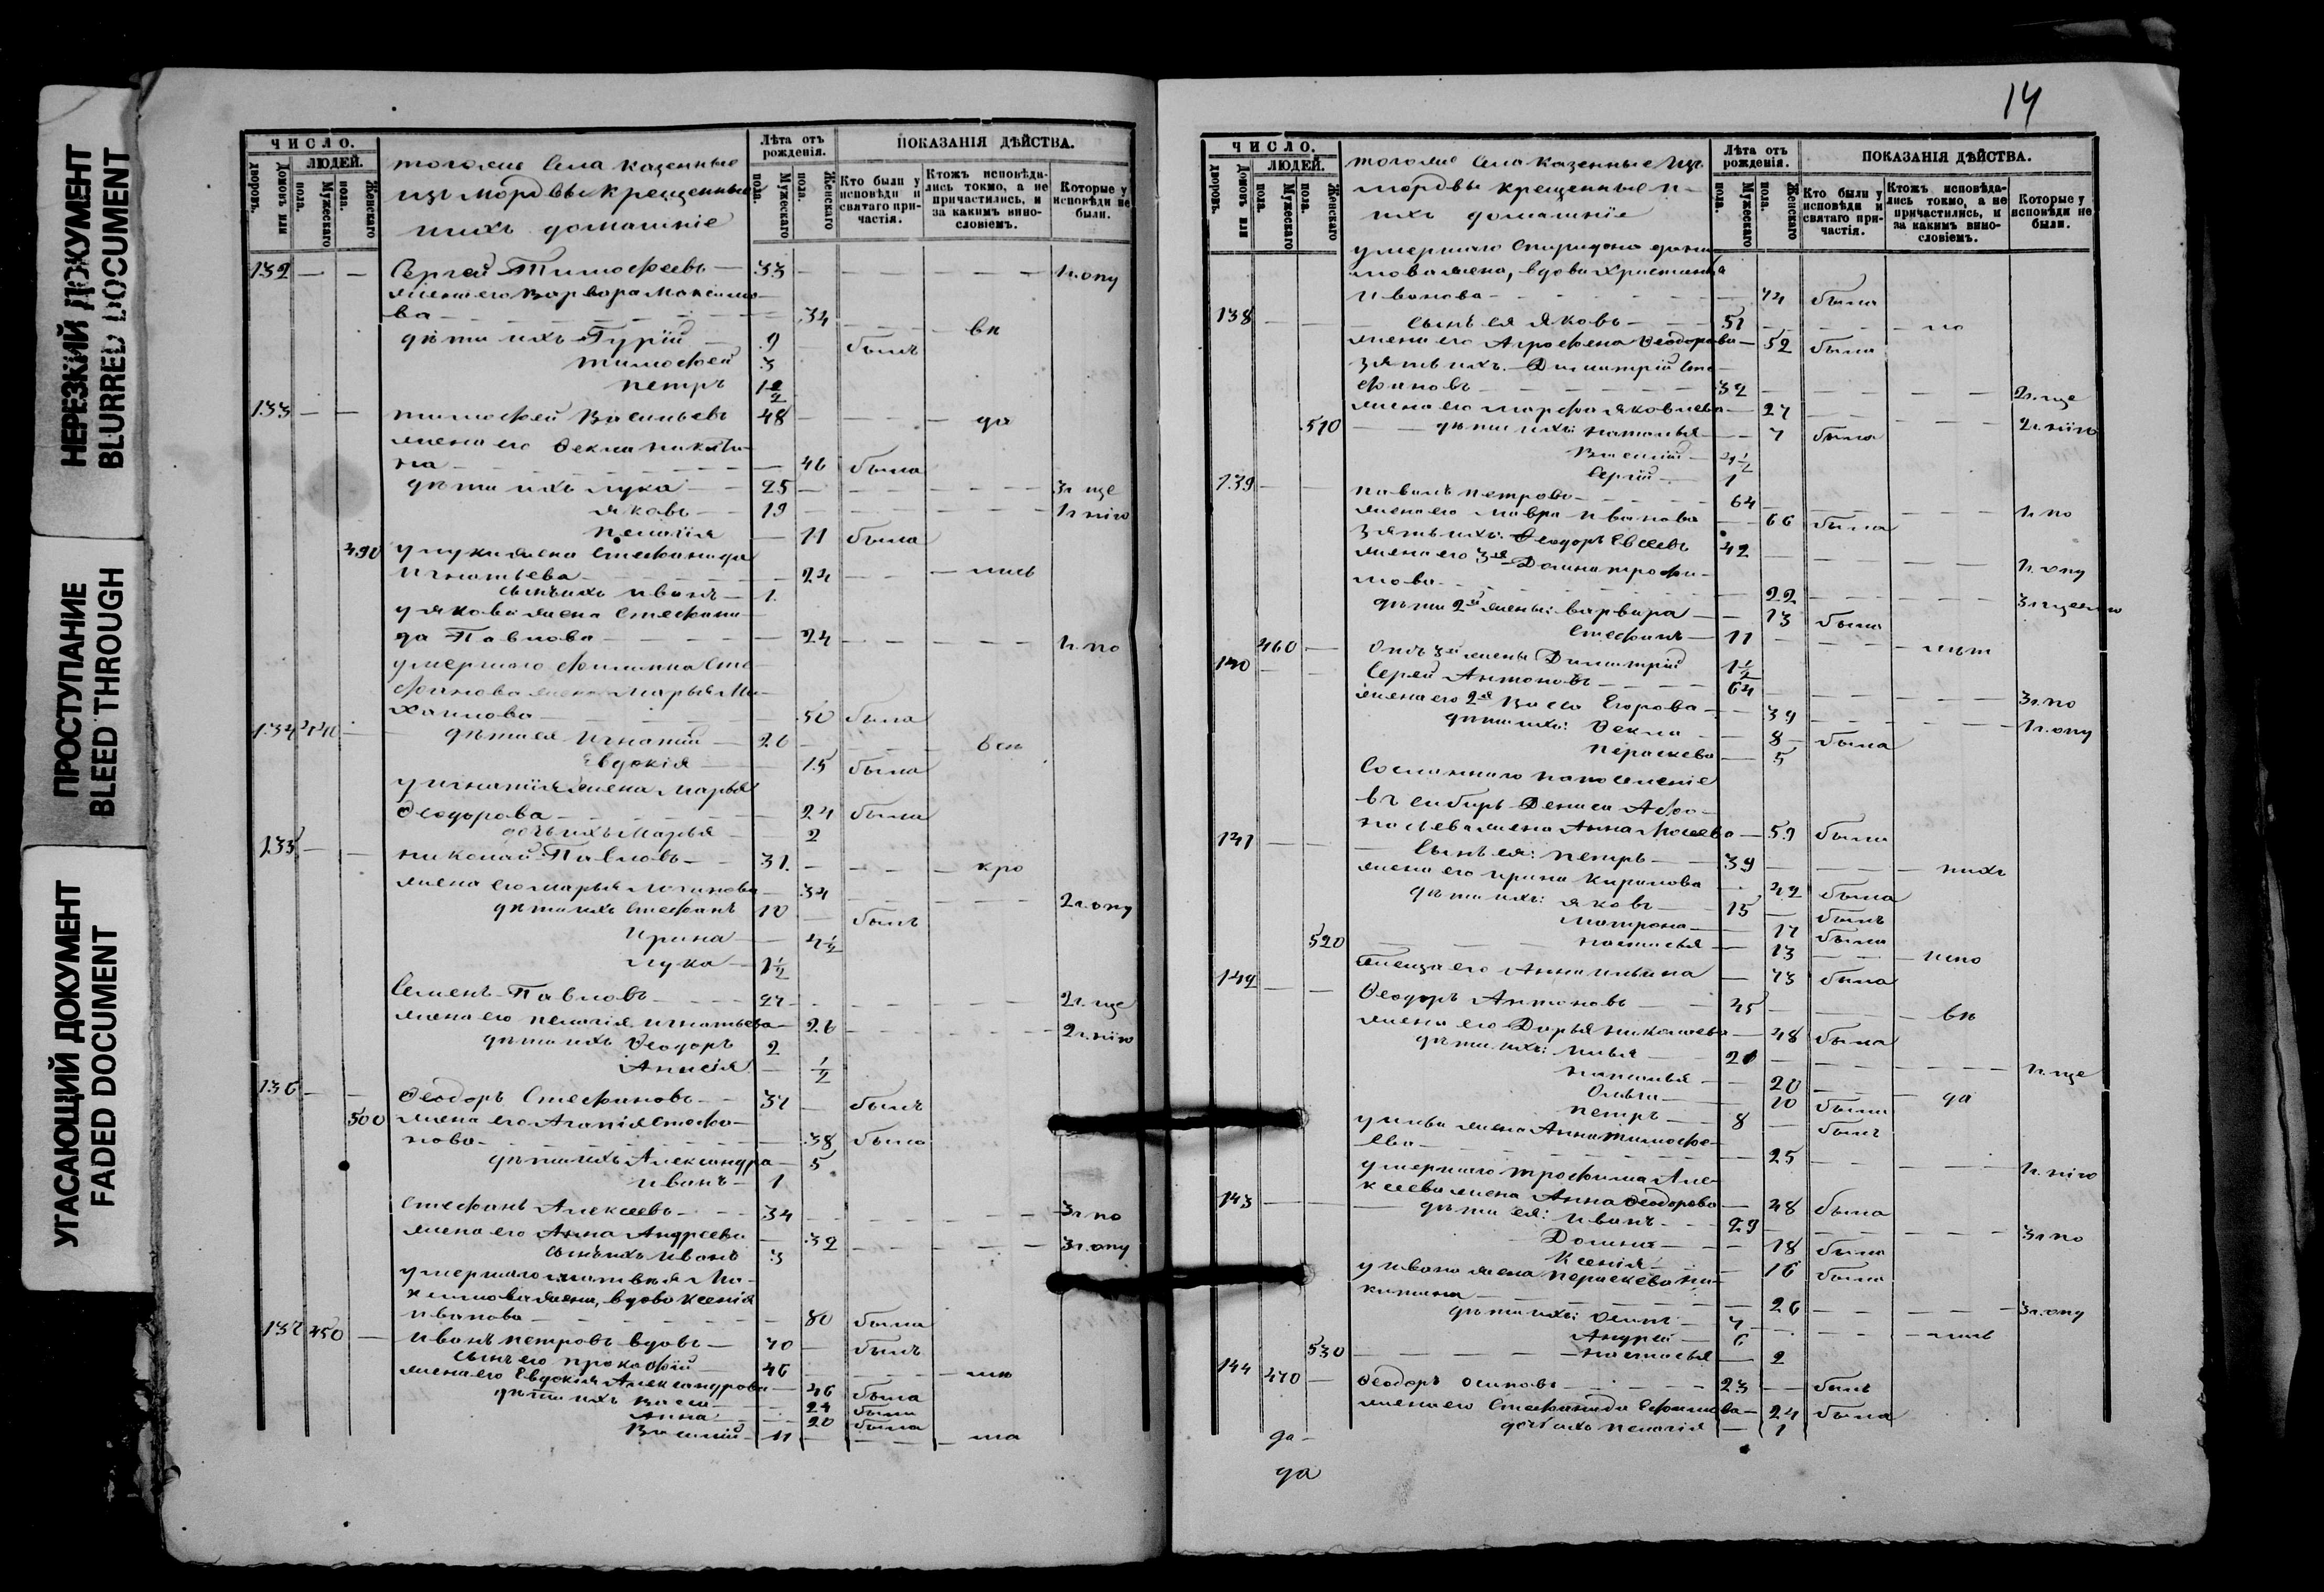 НЕРЕЗКИЙ ДОКУМЕНТ
BLURRED DOCUMENT
ПРОСТУПАНИЕ
BLEED THROUGH
УГАСАЮЩИЙ ДОКУМЕНТ
FADED DOCUMENT
ЧИСЛО.
ЛЮДЕЙ.
Домовъ или дворовъ.
Мужескаго пола.
Женскаго пола.
тогоже села казенные
изъ мордвы крещенные
и ихъ домашнiе
Лѣта отъ рожденія.
Мужескаго пола.
Женскаго пола.
ПОКАЗАНІЯ ДѢЙСТВА.
Кто были у исповѣди и святаго причастія.
Ктожъ исповѣдались токмо, а не причастились, и за какимъ винословіемъ.
Которые у исповѣди не были.
132 — — Сергей Тимофеевъ — 33 1 г. опу
жена его Варвара Максимо-
ва 34 вк
дѣти ихъ Гурій 9 былъ
Тимофей 3
Петръ 1 1/2
133 — — Тимофей Васильевъ 48 да
жена его Ѳекла Никити-
на 46 была
дѣти ихъ Лука 25 3 г. ще
Яковъ 19 1 г. нію
Пелагія 11 была
490 у Луки жена Стефанида
Игнатьева 24
сынъ ихъ Иванъ 1
у Якова жена Стефани-
да Павлова 24 1 г. по
умершаго Филиппа Сте-
фанова жена Марья Ми-
хайлова 50 была
134 440 — дѣти ея Игнатій 26
Евдокія 15 была
у Игнатія жена Марья
Ѳеодорова 24 была
дочь ихъ Марья 2
135 — — Николай Павловъ 31 кро
жена его Марья Логинова 34 2 г. опу
дѣти ихъ Стефанъ 10 былъ
Ирина 4 1/2
Лука 1 1/2
Семенъ Павловъ 27 2 г. ще
жена его Пелагія Игнатьева 26 2 г. нію
дѣти ихъ Ѳеодоръ 2
Анисія 1/2
136 — — Ѳеодоръ Стефановъ 37 былъ
500 жена его Агапія Стефа-
нова 38 была
дѣти ихъ Александра 5
Иванъ 1
Стефанъ Алексеевъ 34 3 г. по
жена его Анна Андреева 32 3 г. опу
сынъ ихъ Иванъ 3
умершаго Матвея Ма-
жена, вдова Ксенія
Иванова 80 была
137 450 — Иванъ Петровъ вдовъ 70 былъ
сынъ его Прокофій 46
жена его Евдокія Александрова 46 была
дѣти ихъ Васса 24 была
Анна 20 была
Василій 11
14
ЧИСЛО.
ЛЮДЕЙ.
Домовъ или дворовъ.
Мужескаго пола.
Женскаго пола.
тогоже села казенные изъ
мордвы крещенные и
ихъ домашнiе
Лѣта отъ рожденія.
Мужескаго пола.
Женскаго пола.
ПОКАЗАНІЯ ДѢЙСТВА.
Кто были у исповѣди и святаго причастія.
Ктожъ исповѣдались токмо, а не причастились, и за какимъ винословіемъ.
Которые у исповѣди не были.
умершаго Спиридона
жена, вдова Христина
Иванова 74 была
138 — — сынъ ея Яковъ 51 по
жена его Агрофена Ѳеодорова 52 была
зять ихъ Димитрій Сте-
фановъ 32 2 г. ще
жена его Марфа Яковлева 27 2 г. нію
510 дѣти ихъ: Наталья 7 была
Василій 4 1/2
Сергій 1
139 — — Павелъ Петровъ 64 1 г. по
жена его Мавра Иванова 66 была
зять ихъ: Ѳеодоръ Евсеевъ 42 1 г. опу
жена его 3я Домна Трофи-
мова 22
дѣти 2й жены: Варвара 13 была
Стефанъ 11
460 — отъ 3й жены Димитрій 1 1/2
140 — — Сергей Антоновъ 64 3 г. по
жена его 2я Васса Егорова 39 1 г. опу
дѣти ихъ: Ѳекла 8 была
Параскева 5
Сосланнаго на поселеніе
въ сибирь Дениса Афо-
насьева жена Анна Моисеева 59 была
141 — — сынъ ея: Петръ 39 нихъ
жена его Ирина Кирилова 42 была
дѣти ихъ: Яковъ 15 былъ
Матрона 17 была
520 Настасья 13
теща его Анна Ильина 73 была
142 — — Ѳеодоръ Антоновъ 45 вк
жена его Дарья Николаева 48 была
дѣти ихъ: Илья 21 1 г. ще
Наталья 20 да
Ольга 10 была
Петръ 8 былъ
у Ильи жена Анна Тимофе-
ева 25 1 г. нію
умершаго Трофима Але-
ксеева жена Анна Ѳеодорова 48 была
143 — — дѣти ея: Иванъ 29 3 г. по
Домна 18 была
Ксенія 16 была
у Ивана жена Параскева Ни-
китина 26 3 г. опу
дѣти ихъ: Осипъ 7
Андрей 6
530 Настасья 2
144 470 — Ѳеодоръ Осиповъ 23 былъ
жена его Стефанида Ефимова 24 была
дочь ихъ Пелагія 1
да
да